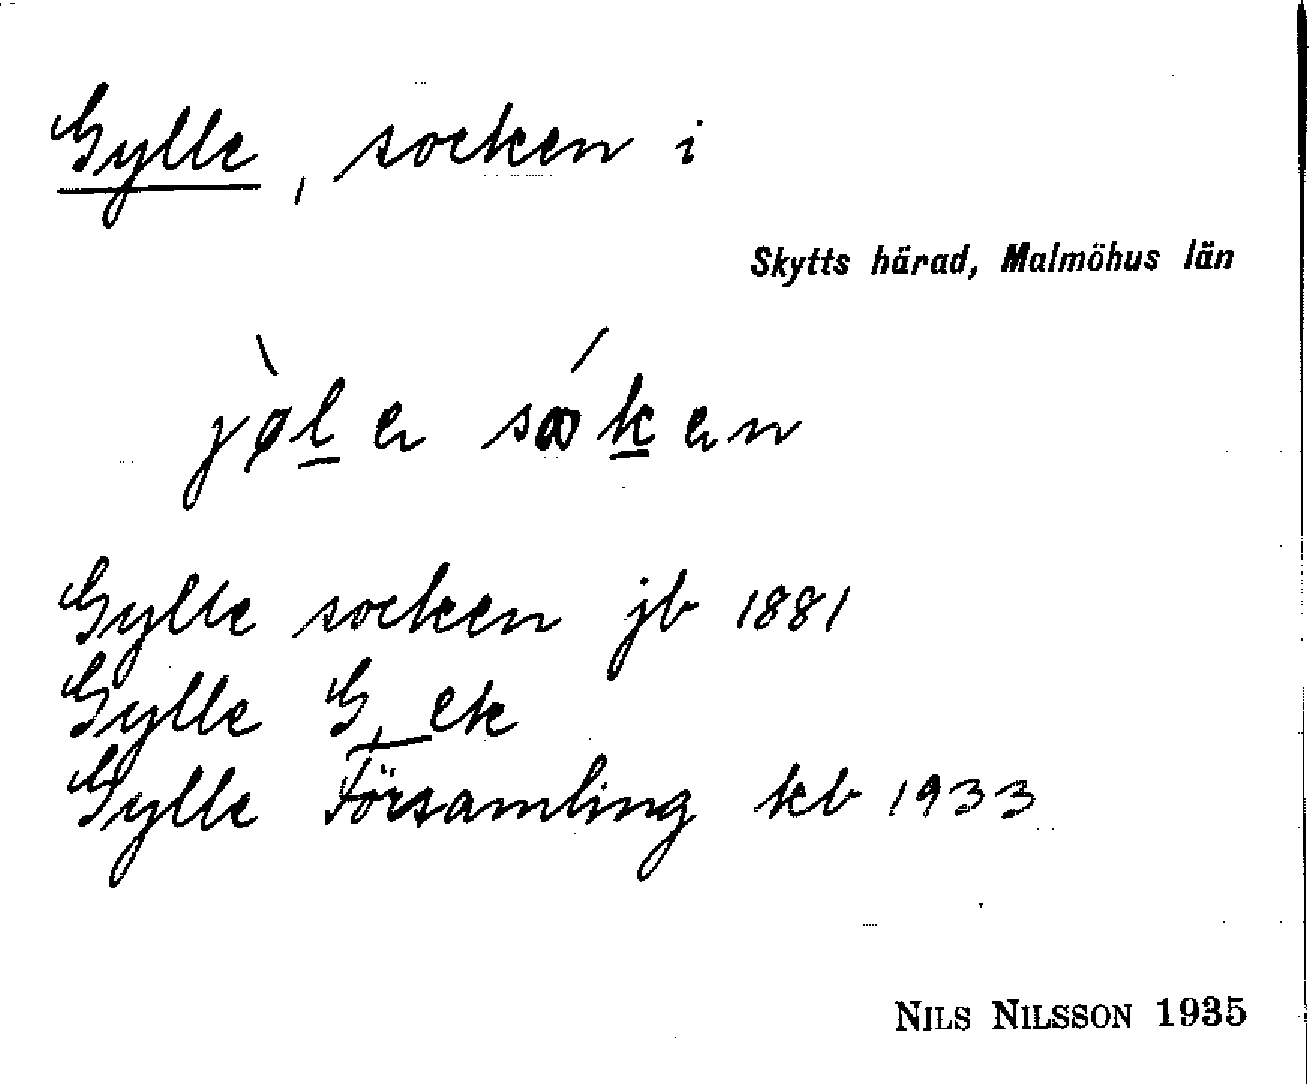 Gylle, socken i
Skytts härad, Malmöhus län
jø̀le sóken
Gylle socken jb 1881
Gylle G, ek
Gylle Församling kb 1933
NILS NILSSON 1935